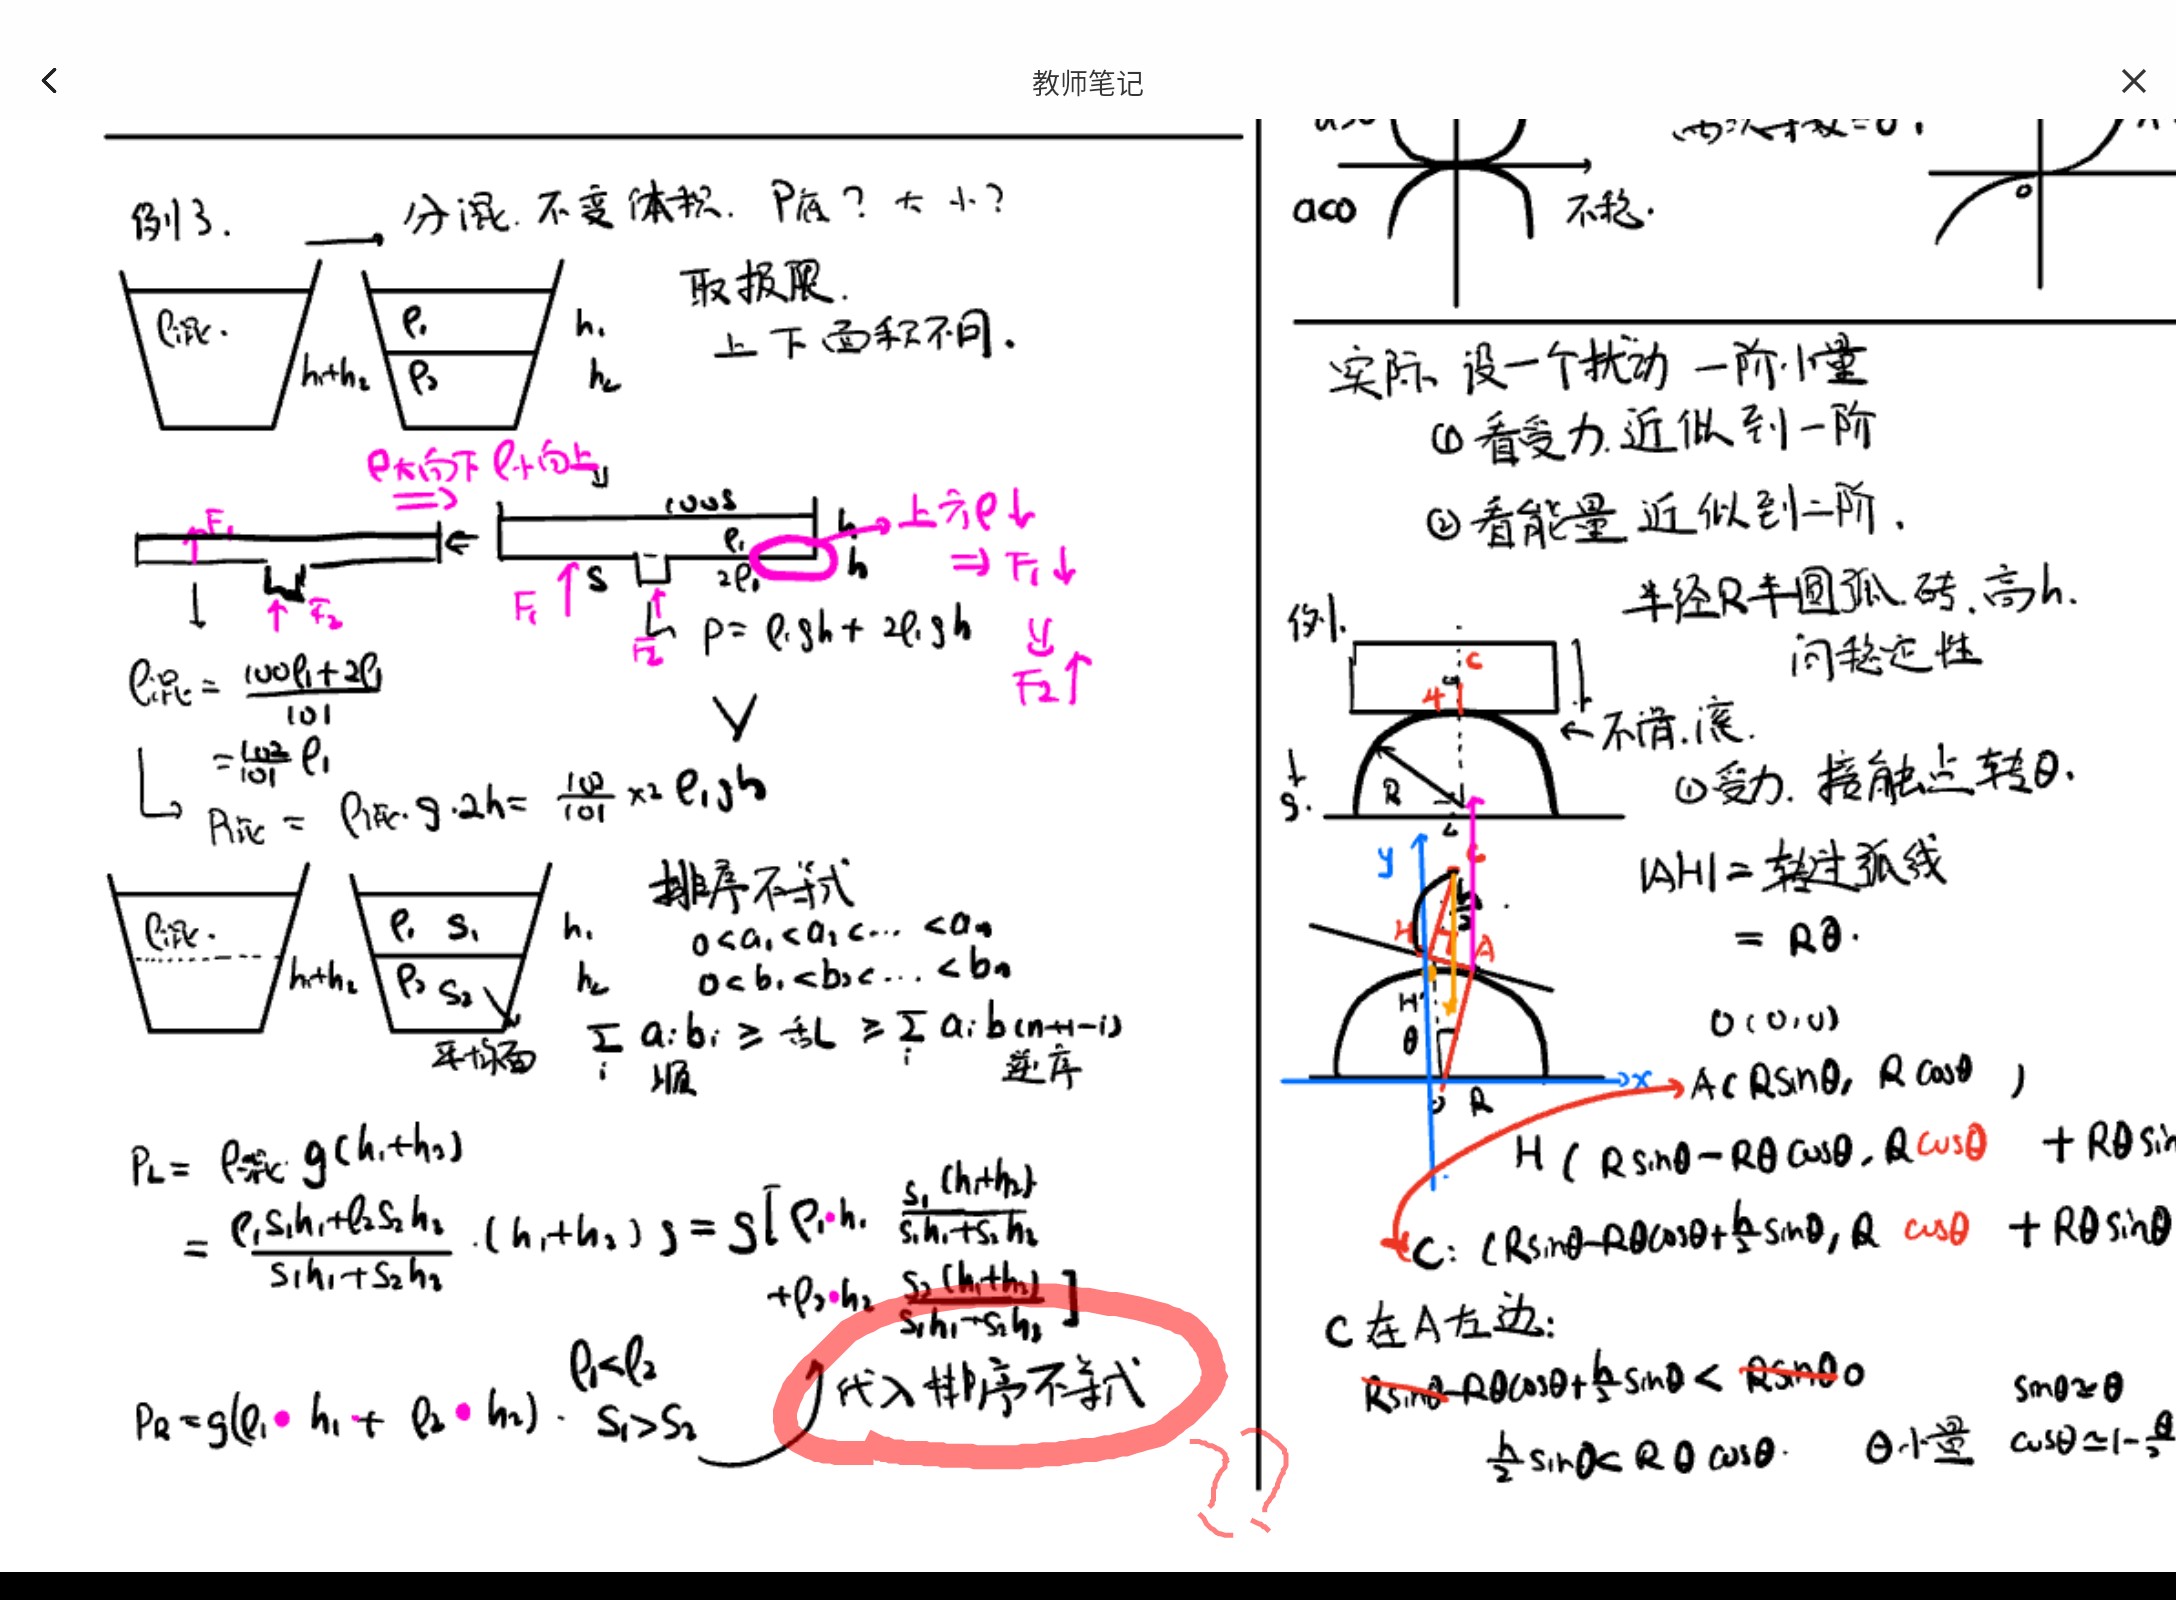 教师笔记
例3.
分混.不变体积. P底？大小？
ρ混.
h₁+h₂
ρ₁
ρ₂
h₁
h₂
取极限.
上下面积不同.
ρ大向下 ρ小向上
F₁
F₂
100S
ρ₁
h
S
2ρ₁
h
F₁
F₂
上方ρ↓
⇒ F₁↓
F₂↑
P = ρ₁gh + 2ρ₁gh
ρ混 = (100ρ₁+2ρ₁)/101
= 102/101 ρ₁
P混 = ρ混·g·2h = 102/101 ×2 ρ₁gh
ρ混.
h₁+h₂
ρ₁ S₁
ρ₂ S₂
h₁
h₂
平均面
排序不等式
0<a₁<a₂<… <aₙ
0<b₁<b₂<… <bₙ
∑ᵢ aᵢbᵢ ≥ 乱 ≥ ∑ᵢ aᵢb(n+1-i)
顺
逆序
P_L = ρ混 g(h₁+h₂)
= (ρ₁S₁h₁+ρ₂S₂h₂)/(S₁h₁+S₂h₂) ·(h₁+h₂) g = g[ρ₁·h₁ S₁(h₁+h₂)/(S₁h₁+S₂h₂)
+ρ₂·h₂ S₂(h₁+h₂)/(S₁h₁+S₂h₂)]
P_R = g(ρ₁·h₁ + ρ₂·h₂).
ρ₁<ρ₂
S₁>S₂
代入排序不等式
a<0
不稳.
0
实际、设一个扰动 一阶小量
① 看受力.近似到一阶
② 看能量 近似到二阶.
例1.
半径R半圆弧.砖.高h.
问稳定性
C
H
R
g.
←不滑.滚.
①受力. 接触点转θ.
|AH| = 转过弧线
= Rθ.
y
C
h/2
H
A
H'
θ
x
O
R
O(0,0)
A(Rsinθ, Rcosθ )
H(Rsinθ-Rθcosθ, Rcosθ +Rθsin
C: (Rsinθ-Rθcosθ+h/2 sinθ, R cosθ + Rθsinθ
C在A左边:
Rsinθ-Rθcosθ+h/2 sinθ < Rsinθ 0
h/2 sinθ< Rθcosθ.
θ小量
sinθ≃θ
cosθ≃1-θ/2